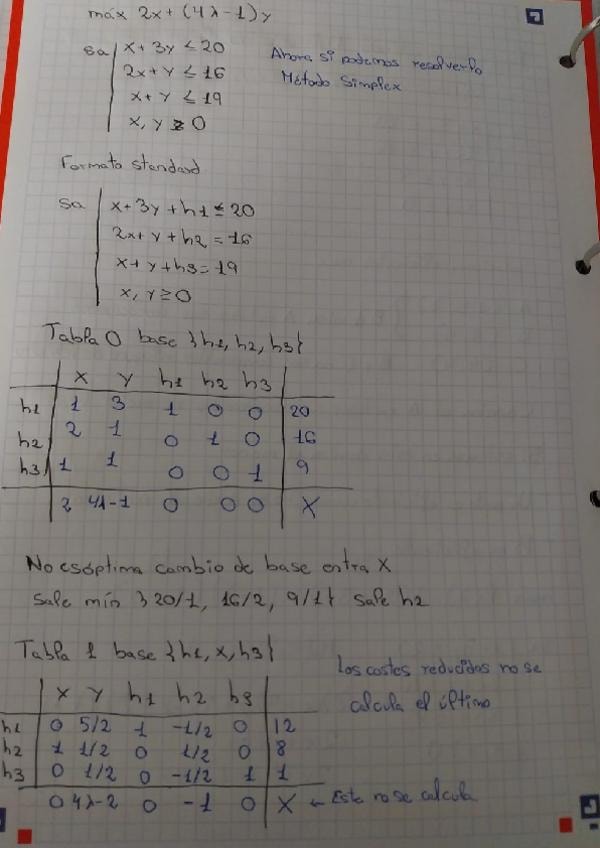 máx 2x + (4λ-1) y
sa x + 3y ≤ 20
2x + y ≤ 16
x + y ≤ 19
x, y ≥ 0
Ahora si podemos resolverlo
Método Simplex
Formato standard
sa x + 3y + h1 ≤ 20
2x + y + h2 = 16
x + y + h3 = 19
x, y ≥ 0
Tabla 0 base {h1, h2, h3}
x y h1 h2 h3
h1 1 3 1 0 0 20
h2 2 1 0 1 0 16
h3 1 1 0 0 1 9
2 4λ-1 0 0 0 X
No es óptima cambio de base entra x
Sale mín {20/1, 16/2, 9/1} sale h2
Tabla 1 base {h1, x, h3}
Los costes reducidos no se
calcula el último
x y h1 h2 h3
h1 0 5/2 1 -1/2 0 12
h2 1 1/2 0 1/2 0 8
h3 0 1/2 0 -1/2 1 1
0 4λ-2 0 -1 0 X ← Este no se calcula